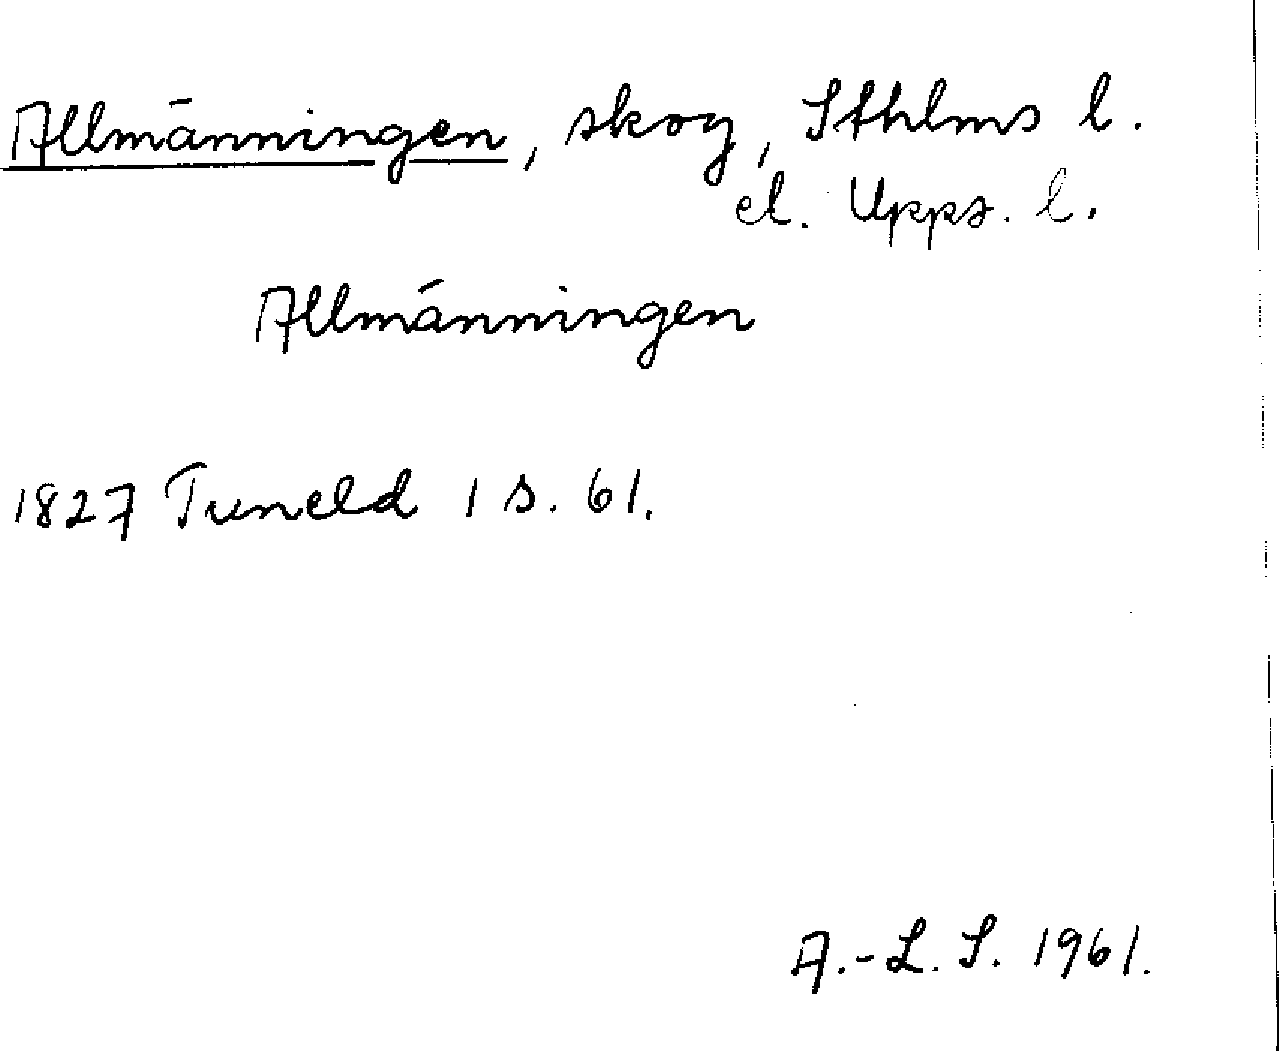 Allmänningen, skog, Sthlms l.
el. Upps. l.
Allmänningen
1827 Tuneld 1 s. 61.
A.-L. S. 1961.